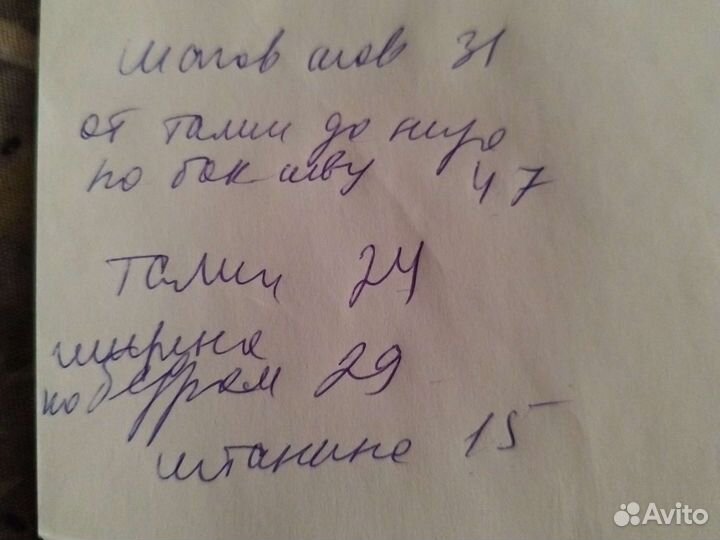 шагов шов 31
от талии до низа
по бок шву 47
талии 24
ширина
по бедрам 29
штанина 15
Avito